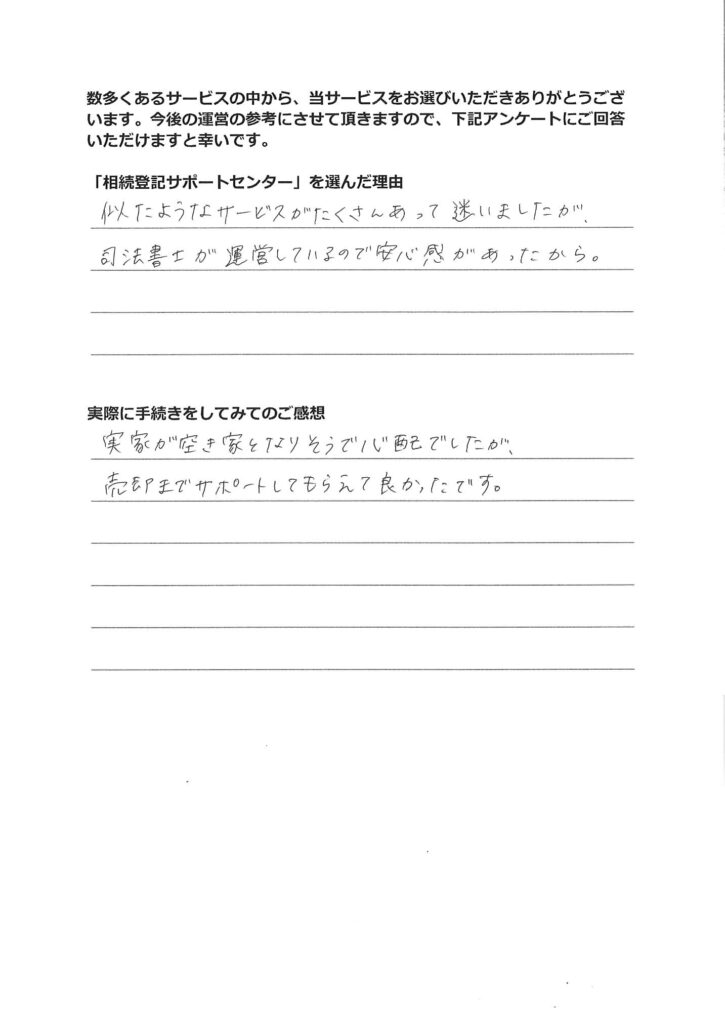 数多くあるサービスの中から、当サービスをお選びいただきありがとうござ
います。今後の運営の参考にさせて頂きますので、下記アンケートにご回答
いただけますと幸いです。
「相続登記サポートセンター」を選んだ理由
似たようなサービスがたくさんあって迷いましたが、
司法書士が運営しているので安心感があったから。
実際に手続きをしてみてのご感想
実家が空き家となりそうで心配でしたが、
売却までサポートしてもらえて良かったです。